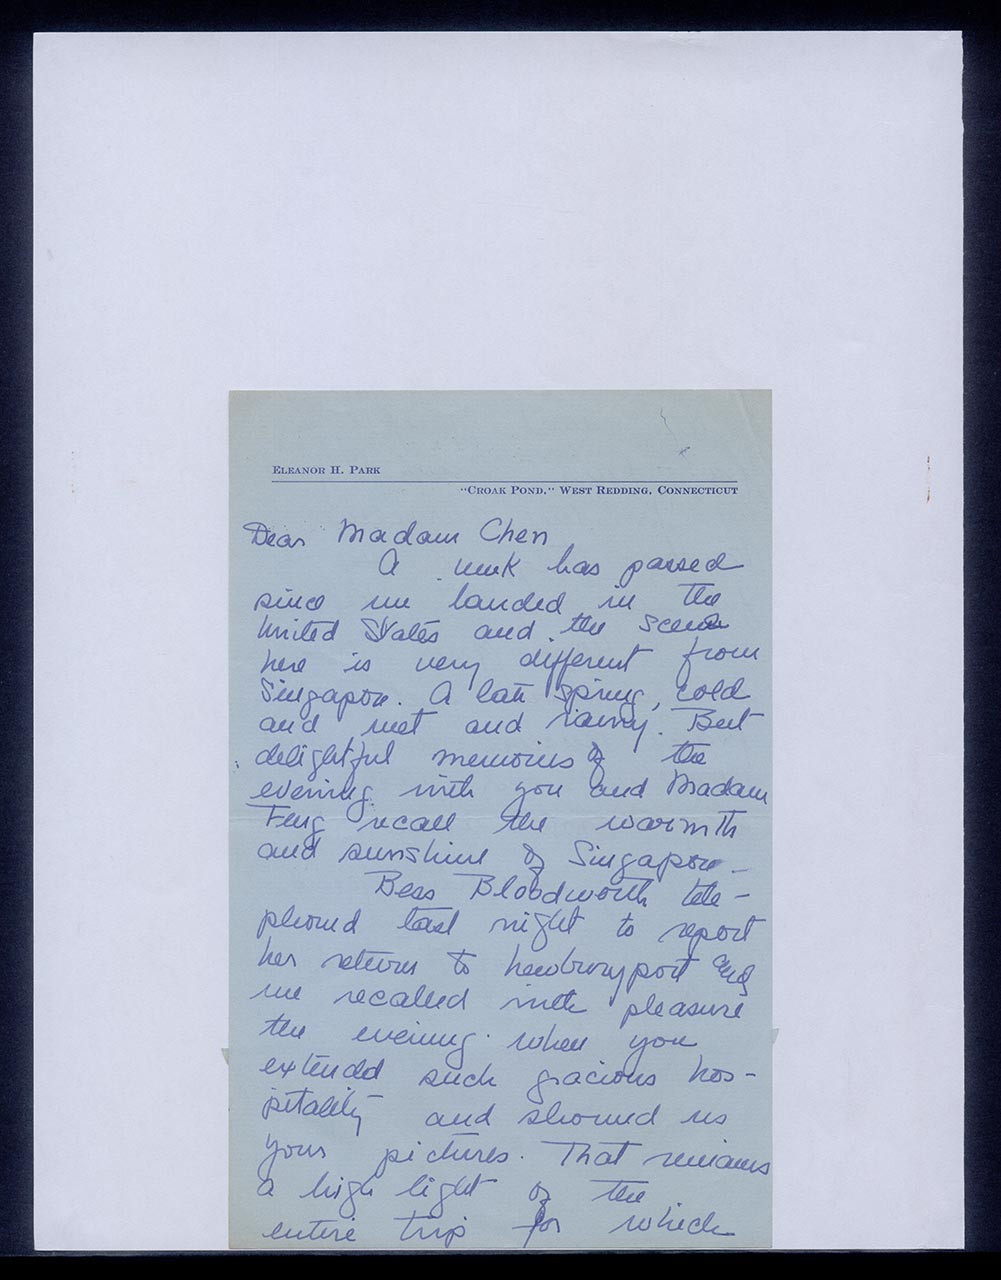 ELEANOR H. PARK
"CROAK POND," WEST REDDING, CONNECTICUT
Dear Madam Chen
A week has passed
since we landed in the
United States and the scene
here is very different from
Singapore. A late spring, cold
and wet and rainy. But
delightful memories of the
evening with you and Madam
Feng recall the warmth
and sunshine of Singapore -
Bess Bloodworth tele-
phoned last night to report
her return to Newburyport and
we recalled with pleasure
the evening when you
extended such gracious hos-
pitality and showed us
your pictures. That remains
a high light of the
entire trip for which